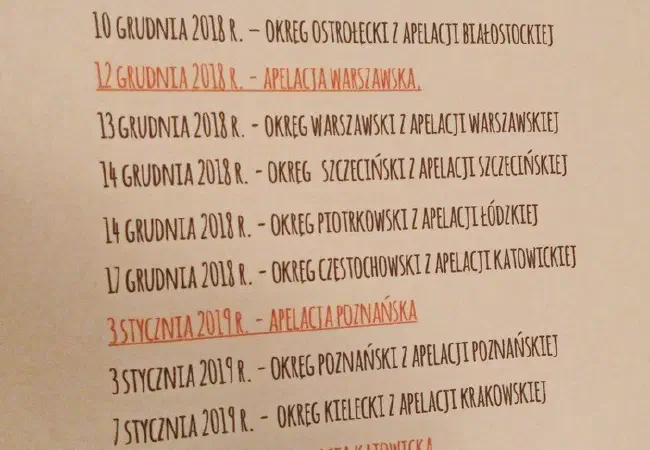 10 GRUDNIA 2018 R. – OKRĘG OSTROŁĘCKI Z APELACJI BIAŁOSTOCKIEJ
12 GRUDNIA 2018 R. - APELACJA WARSZAWSKA.
13 GRUDNIA 2018 R. - OKRĘG WARSZAWSKI Z APELACJI WARSZAWSKIEJ
14 GRUDNIA 2018 R. - OKRĘG SZCZECIŃSKI Z APELACJI SZCZECIŃSKIEJ
14 GRUDNIA 2018 R. - OKRĘG PIOTRKOWSKI Z APELACJI ŁÓDZKIEJ
17 GRUDNIA 2018 R. - OKRĘG CZĘSTOCHOWSKI Z APELACJI KATOWICKIEJ
3 STYCZNIA 2019 R. - APELACJA POZNAŃSKA
3 STYCZNIA 2019 R. - OKRĘG POZNAŃSKI Z APELACJI POZNAŃSKIEJ
7 STYCZNIA 2019 R. - OKRĘG KIELECKI Z APELACJI KRAKOWSKIEJ
KATOWICKA